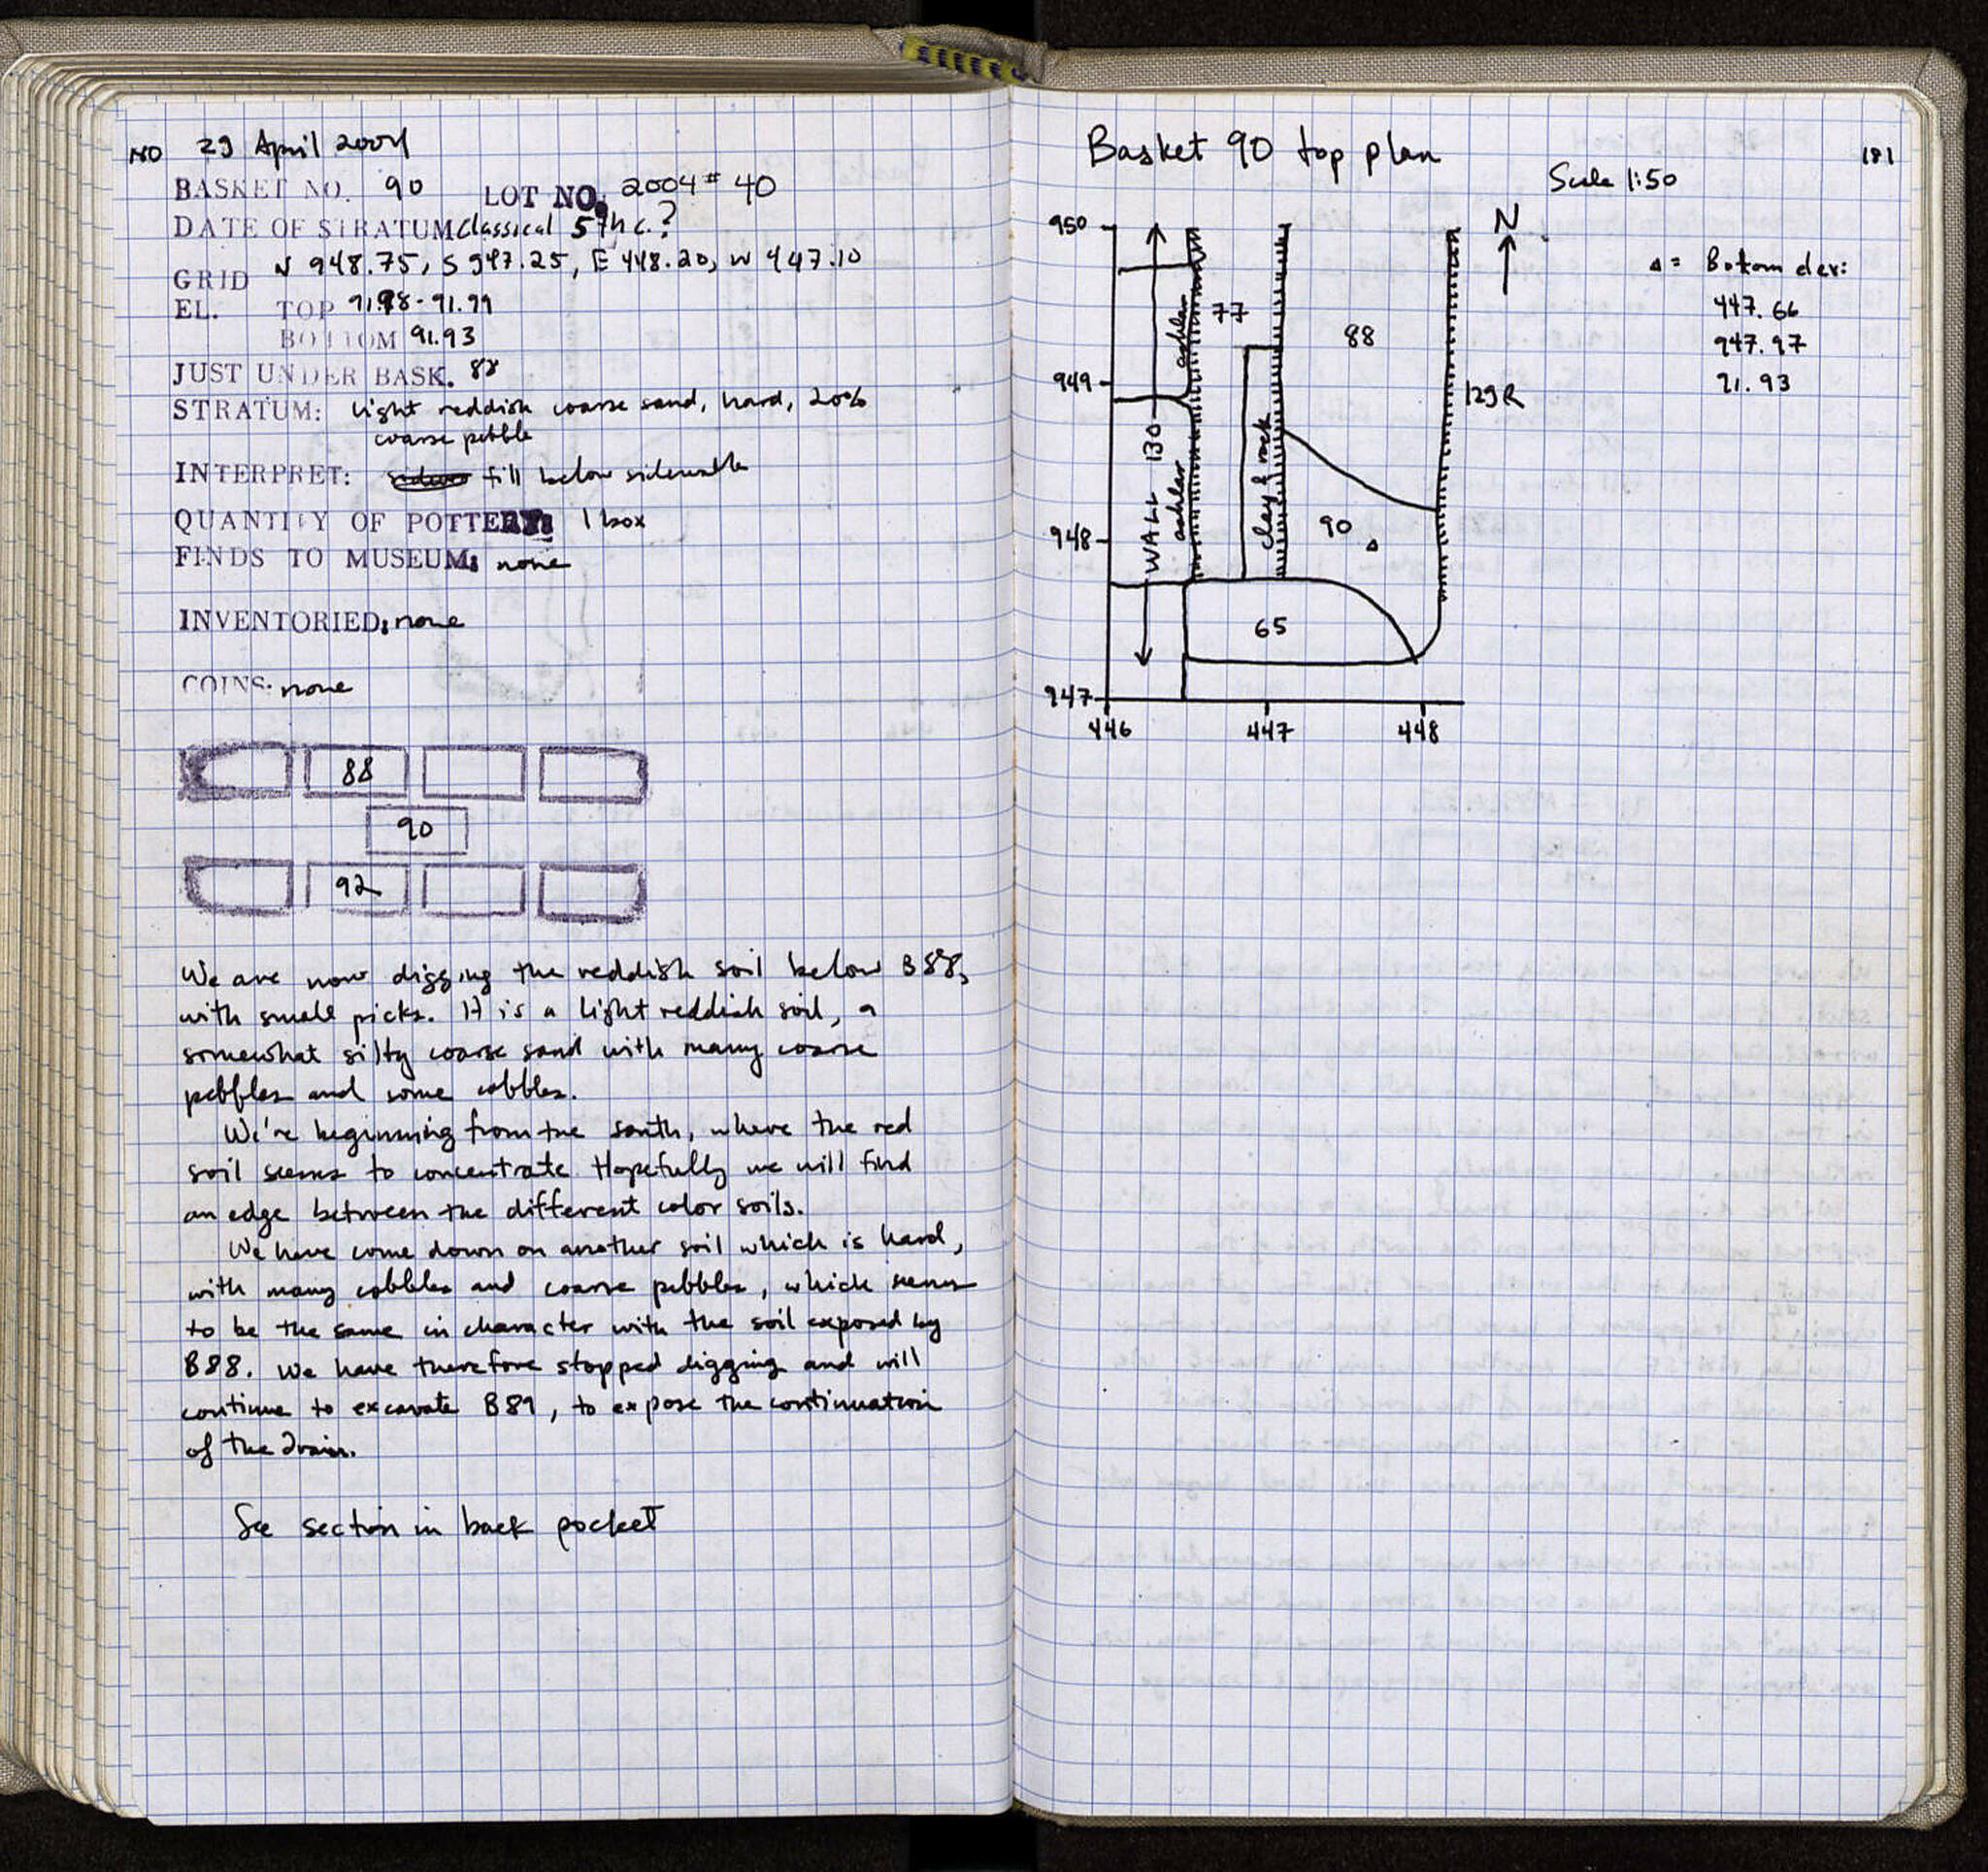 180 29 April 2004
BASKET NO. 90 LOT NO. 2004# 40
DATE OF STRATUM Classical 5th c.?
GRID N 948.75, S 947.25, E 448.20, W 447.10
EL. TOP 91.98-91.99
BOTTOM 91.93
JUST UNDER BASK. 88
STRATUM: light reddish coarse sand, hard, 20%
coarse pebble
INTERPRET: fill below sidewalk
QUANTITY OF POTTERY: 1 box
FINDS TO MUSEUM: none
INVENTORIED: none
COINS: none
88
90
92
We are now digging the reddish soil below B88,
with small picks. It is a light reddish soil, a
somewhat silty coarse sand with many coarse
pebbles and some cobbles.
We're beginning from the south, where the red
soil seems to concentrate. Hopefully we will find
an edge between the different color soils.
We have come down on another soil which is hard,
with many cobbles and coarse pebbles, which seems
to be the same in character with the soil exposed by
B88. We have therefore stopped digging and will
continue to excavate B89, to expose the continuation
of the drain.
See section in back pocket
Basket 90 top plan
181
Scale 1:50
N
Δ = Bottom elev:
447.66
947.97
91.93
950
949
948
947
446
447
448
WALL 130
ashlar
ashlar
77
clay & rock
88
90
65
129R